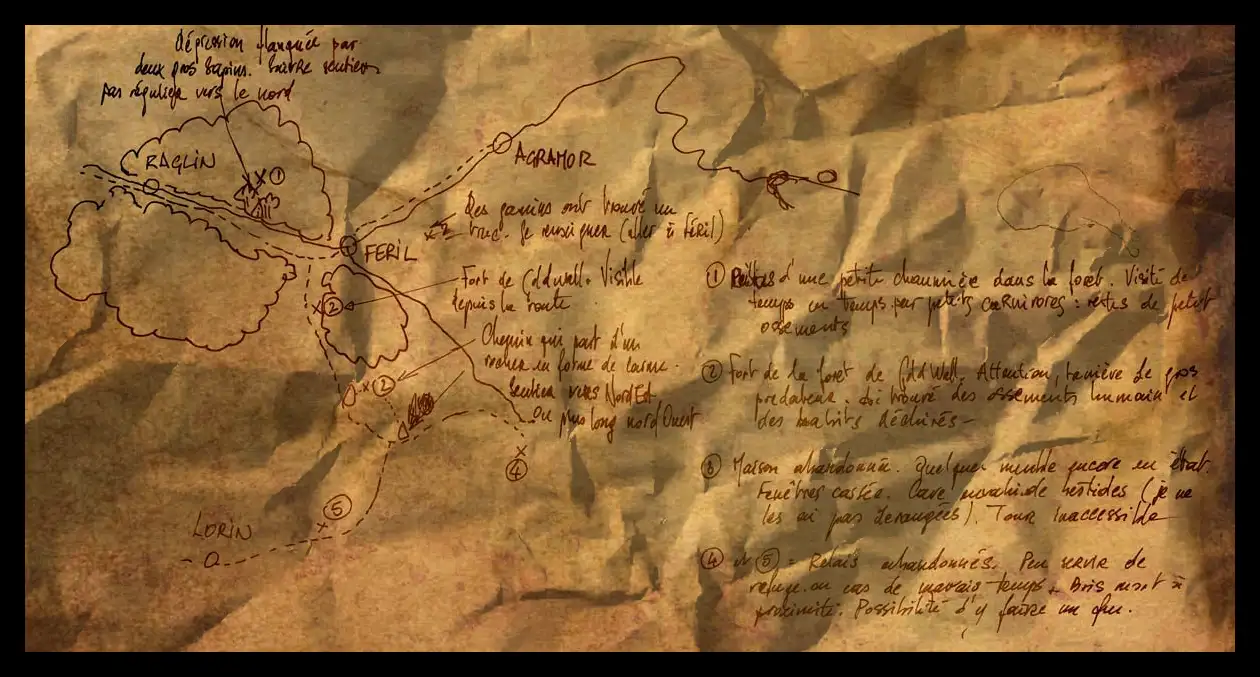 dépression flanquée par
deux gros sapins. Suivre sentier
pas régulier vers le nord
RAGLIN
①
AGRAMOR
Des gamins ont trouvé un
truc. Se renseigner (aller à Féril)
x?
FERIL
Fort de Coldwall. Visible
depuis la route
②
Chemin qui part d'un
rocher en forme de larme.
Sentier vers Nord Est
Ou plus long nord Ouest
②
④
⑤
LORIN
① d'une petite chaumière dans la forêt. Visité de
temps en temps par petits carnivores : restes de petit
ossements
② Fort de la forêt de ColdWall. Attention, tanière de gros
predateur. Ai trouvé des ossements humain et
des habits déchirés -
③ Maison abandonnée. Quelques meuble encore en état.
Fenêtres cassée. Cave de bestides (je ne
les ai pas derangées). Tour inaccessible
④ et ⑤ = Relais abandonnés. Peu servir de
refuge en cas de mauvais temps. Bois mort à
proximité. Possibilité d'y faire un feu.